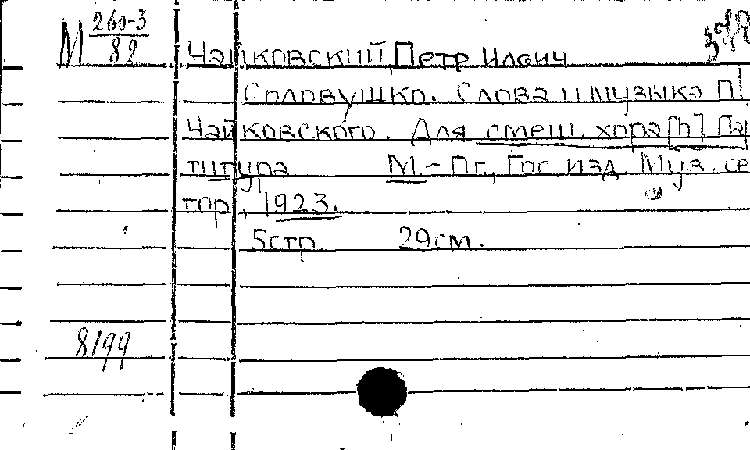 М 260-3
82
Чайковский, Петр Ильич
Соловушко. Слова и музыка П.
Чайковского. Для смеш. хора [h] Пар
титура М.-Пг., Гос. изд. Муз. се
тор, 1923.
5 стр. 29 см.
8199